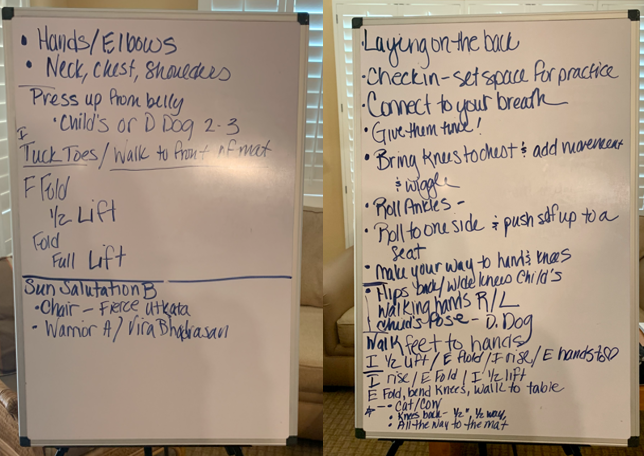 • Hands/Elbows
• Neck, Chest, Shoulders
Press up from belly
• Child's or D Dog 2-3
I
Tuck Toes/Walk to front of mat
F Fold
1/2 Lift
Fold
Full Lift
Sun Salutation B
• Chair - Fierce Utkata
• Warrior A/Vira Bhadrasan
• Laying on the back
• Check in - set space for practice
• Connect to your breath
• Give them time!
• Bring knees to chest & add movement
& wiggle
• Roll Ankles -
• Roll to one side & push self up to a
seat
• make your way to hands & knees
• Hips back/wide knees Child's
Walking hands R/L
Child's Pose - D. Dog
Walk feet to hands
I 1/2 Lift/E Fold/I rise/E hands to
I rise/E Fold/I 1/2 lift
E Fold, bend knees, walk to table
- Cat/Cow
• Knees back - 1/2", 1/2 way,
• All the way to the mat